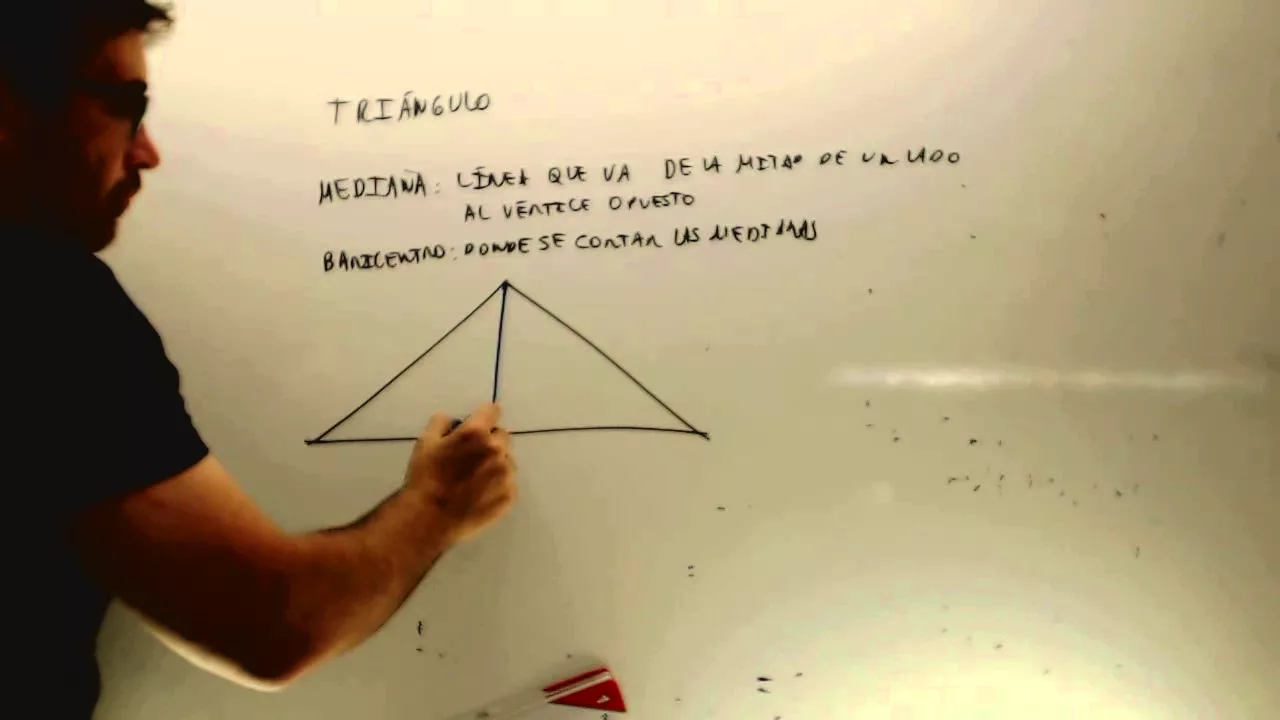 TRIÁNGULO
MEDIANA: LÍNEA QUE VA DE LA MITAD DE UN LADO
AL VÉRTICE OPUESTO
BARICENTRO: DONDE SE CORTAN LAS MEDIANAS